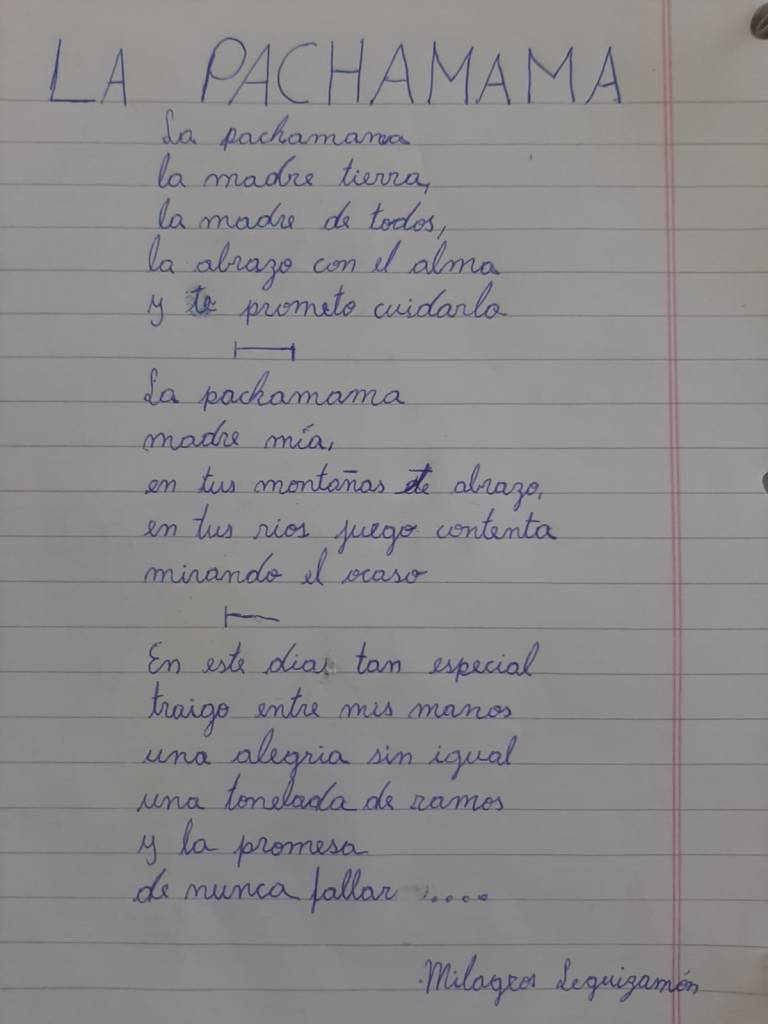 LA PACHAMAMA
La pachamama
la madre tierra,
la madre de todos,
la abrazo con el alma
y te prometo cuidarla
La pachamama
madre mía,
en tus montañas te abrazo,
en tus rios juego contenta
mirando el ocaso
En este dias tan especial
traigo entre mis manos
una alegria sin igual
una tonelada de ramos
y la promesa
de nunca fallar ....
.Milagros Leguizamón